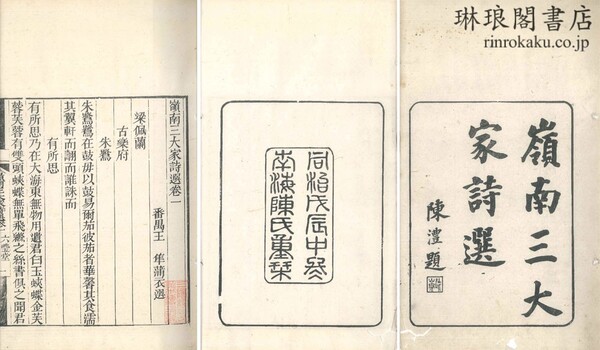 琳琅閣書店
rinrokaku.co.jp
嶺南三大
家詩選
陳澧題
同治戊辰中冬
南海陳氏重槧
嶺南三大家詩選卷一
番禺王 隼蒲衣選
梁佩蘭
古樂府
朱鷺
朱鷺鷺在鼓毋以鼓易爾茄彼茄者華馨其食濡
其翼軒而翮而離誅而
有所思
有所思乃在大海東無物用遺君白玉蛺蝶金芙
蓉芙蓉有雙頭蛺蝶無單飛織之絲書俱之聞君
六瑩堂 一